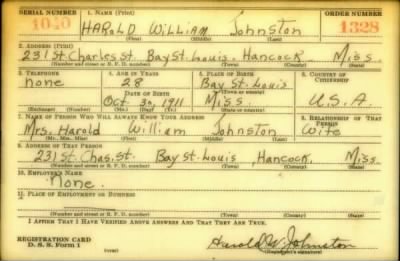 SERIAL NUMBER 1. NAME (Print) ORDER NUMBER
1040 HAROLD WILLIAM Johnston 1328
(First) (Middle) (Last)
2. ADDRESS (Print)
231 St Charles St Bay St. Louis, Hancock Miss.
(Number and street or R. F. D. number) (Town) (County) (State)
3. TELEPHONE 4. AGE IN YEARS 5. PLACE OF BIRTH 6. COUNTRY OF CITIZENSHIP
none 28 Bay St. Louis
DATE OF BIRTH (Town or county)
Oct. 30, 1911 Miss. U.S.A.
(Exchange) (Number) (Mo.) (Day) (Yr.) (State or country)
7. NAME OF PERSON WHO WILL ALWAYS KNOW YOUR ADDRESS 8. RELATIONSHIP OF THAT PERSON
Mrs. Harold William Johnston Wife
(Mr., Mrs., Miss) (First) (Middle) (Last)
9. ADDRESS OF THAT PERSON
231 St. Chas. St. Bay St. Louis Hancock, Miss.
(Number and street or R. F. D. number) (Town) (County) (State)
10. EMPLOYER'S NAME
None.
11. PLACE OF EMPLOYMENT OR BUSINESS
(Number and street or R. F. D. number) (Town) (County) (State)
I AFFIRM THAT I HAVE VERIFIED ABOVE ANSWERS AND THAT THEY ARE TRUE.
REGISTRATION CARD
D. S. S. Form 1 Harold W. Johnston
(Registrant's signature)